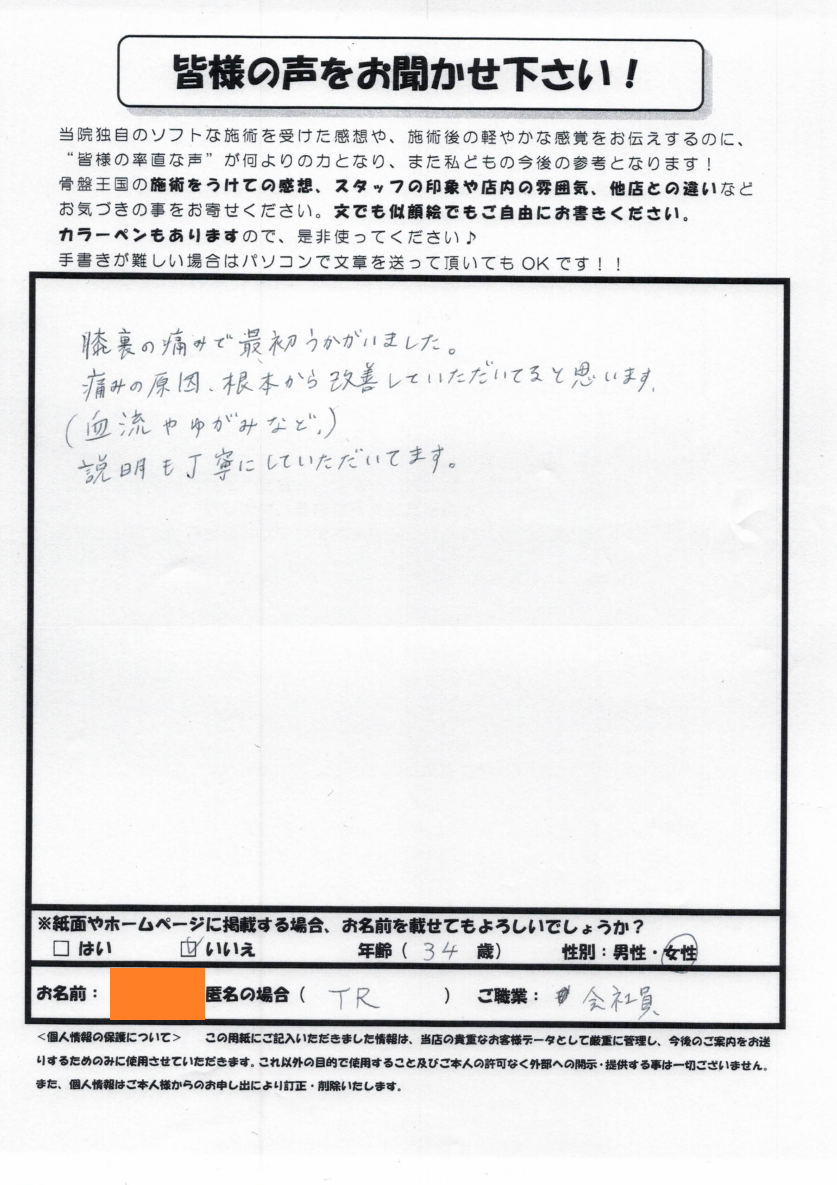 皆様の声をお聞かせ下さい！
当院独自のソフトな施術を受けた感想や、施術後の軽やかな感覚をお伝えするのに、
“皆様の率直な声”が何よりの力となり、また私どもの今後の参考となります！
骨盤王国の施術をうけての感想、スタッフの印象や店内の雰囲気、他店との違いなど
お気づきの事をお寄せください。文でも似顔絵でもご自由にお書きください。
カラーペンもありますので、是非使ってください♪
手書きが難しい場合はパソコンで文章を送って頂いてもOKです！！
膝裏の痛みで最初うかがいました。
痛みの原因、根本から改善していただいてると思います。
(血流やゆがみなど。)
説明も丁寧にしていただいてます。
※紙面やホームページに掲載する場合、お名前を載せてもよろしいでしょうか？
□ はい ☑ いいえ 年齢（ 34 歳） 性別：男性・女性
お名前： 匿名の場合（ TR ） ご職業： 会社員
＜個人情報の保護について＞ この用紙にご記入いただきました情報は、当店の貴重なお客様データとして厳重に管理し、今後のご案内をお送
りするためのみに使用させていただきます。これ以外の目的で使用すること及びご本人の許可なく外部への開示・提供する事は一切ございません。
また、個人情報はご本人様からのお申し出により訂正・削除いたします。